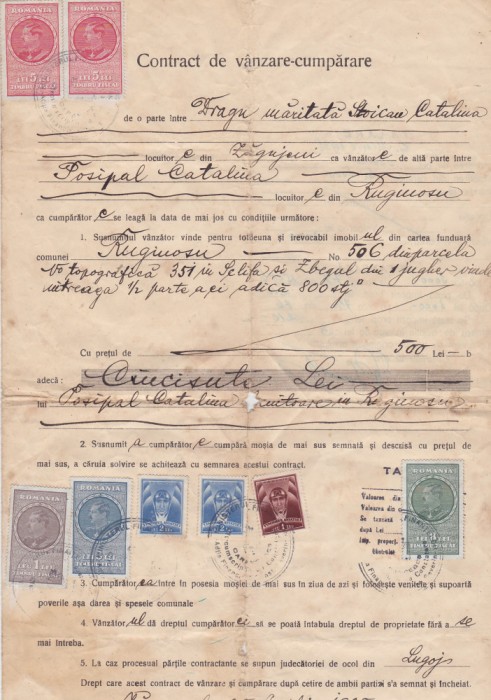 ROMÂNIA ROMÂNIA
LEI 5 LEI LEI 5 LEI
TIMBRU FISCAL TIMBRU FISCAL
Contract de vânzare-cumpărare
de o parte între Dragu măritată Stoican Catalina
locuitor e din Zăgujeni ca vânzător e de altă parte între
Posipal Catalina
locuitor e din Ruginosu
ca cumpărător e se leagă la data de mai jos cu condițiile următore:
1. Susnumitul vânzător vinde pentru totdeuna și irevocabil imobil ul din cartea funduară
comunei Ruginosu No 506 din parcela
topografică 351 in Selisa si Zbegul din 1 jugher vinde
intreaga 1/2 parte a ei adică 800 stj
Cu prețul de 500 Lei — b
adecă: Cincisute Lei
lui Posipal Catalina in
2. Susnumit a cumpărător e cumpără moșia de mai sus semnată și descusă cu prețul de
mai sus, a căruia solvire se achitează cu semnarea acestui contract.
TA
Valoarea din
Valoarea din
Se taxează
după Lei
imp. propert.
ROMANIA ROMANIA
LEI 1 LEU LEI 5 LEI
TIMBRU FISCAL
3. Cumpărător ea intre în posesia moșiei de mai sus în ziua de azi și folosește veniturile și supoartă
poverile așa darea și spesele comunale
4. Vânzător ul dă dreptul cumpărător ei să se poată întabula dreptul de proprietate fără a se
mai întreba.
5. La caz procesual părțile contractante se supun judicătoriei de ocol din Lugoj
Drept care acest contract de vânzare și cumpărare după cetire de ambii părți s'a semnat și încheiat.